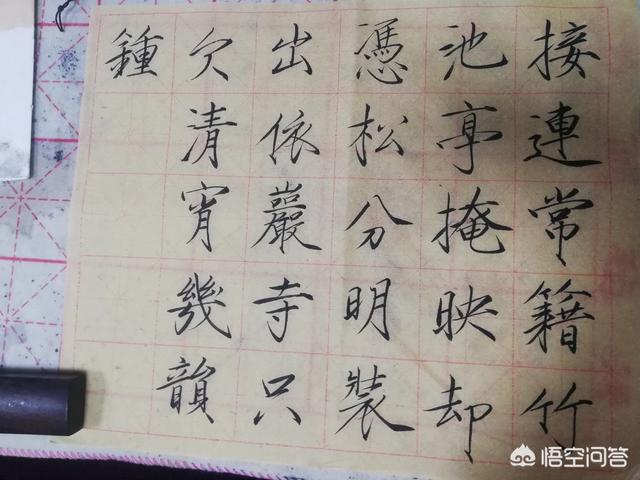 接連常籍竹
池亭掩映却
憑松分明裝
出依巖寺只
欠清宵幾韻
鍾
悟空问答